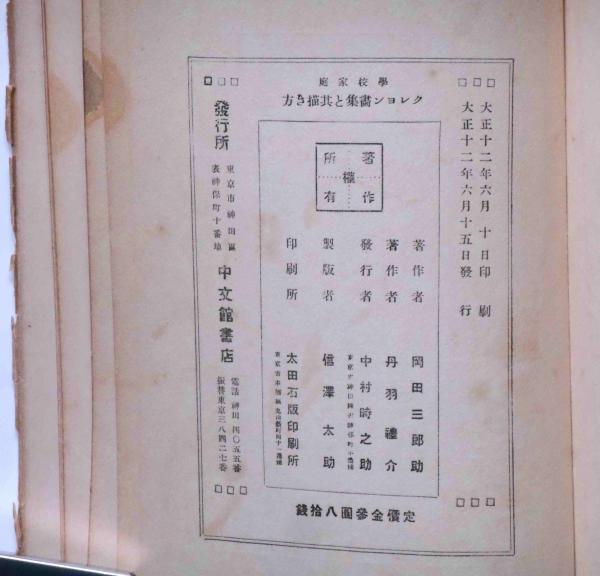 大正十二年六月十日印刷
大正十二年六月十五日發行
學校家庭
クレヨン畵集と其描き方
著作權所有
著作者 岡田三郎助
著作者 丹羽禮介
發行者 中村時之助
製版者 信澤太助
印刷所 太田石版印刷所
定價金參圓八拾錢
發行所
東京市神田區
表神保町十番地
中文館書店
電話神田四〇五五番
振替東京三八四二七番